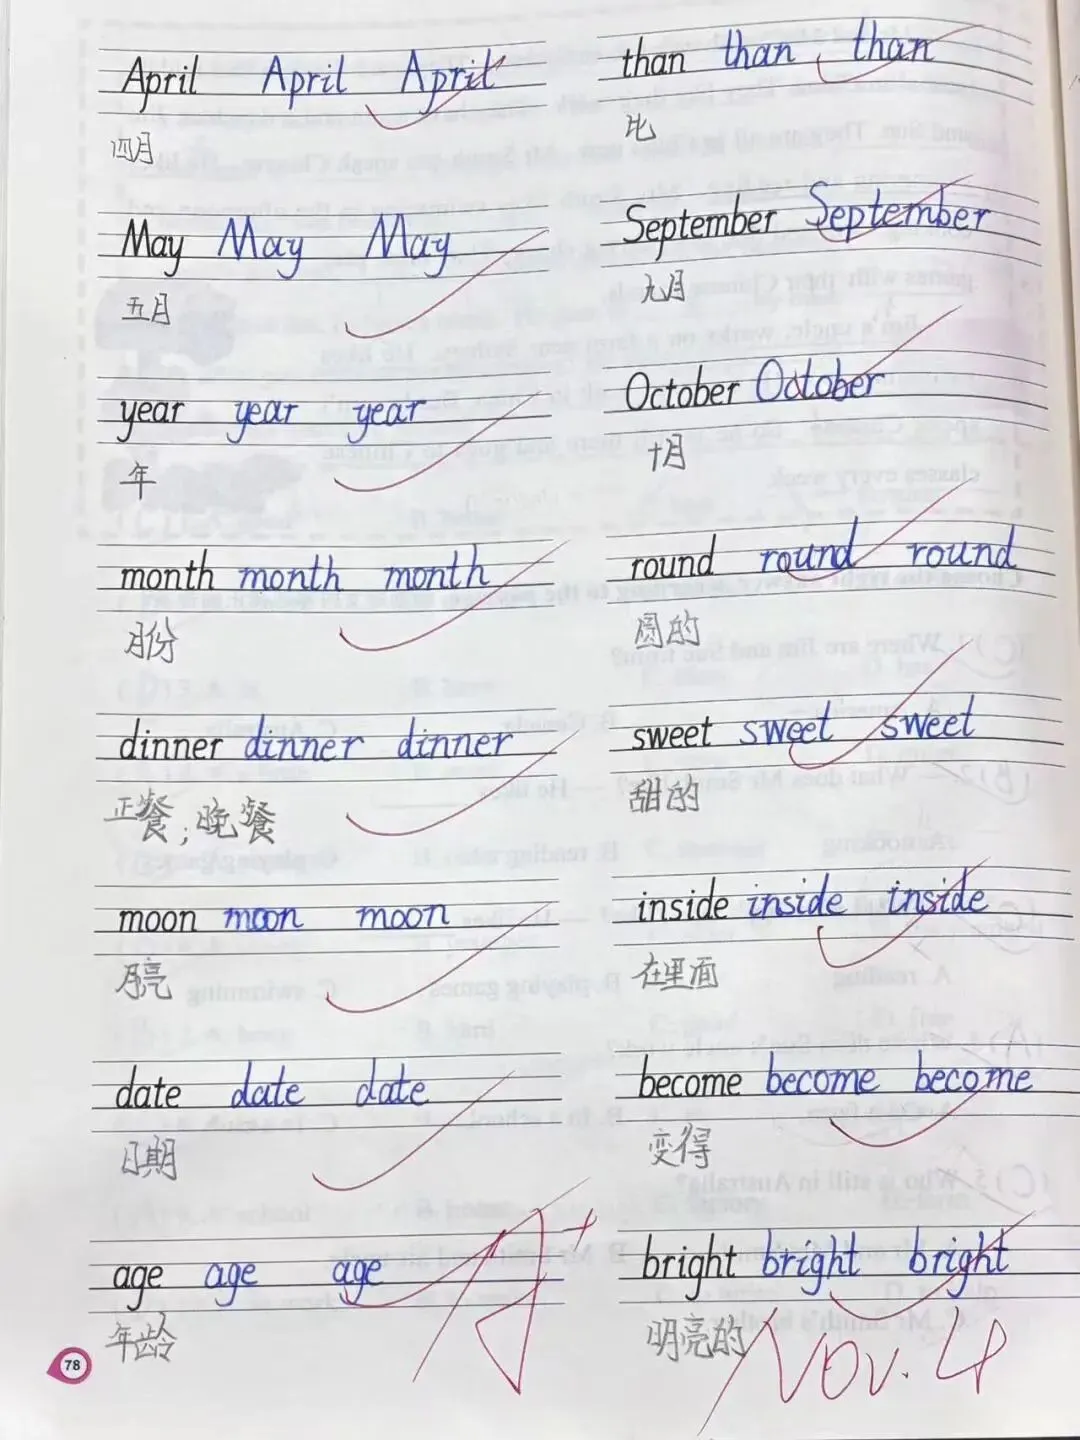 April April April
四月
May May May
五月
year year year
年
month month month
月份
dinner dinner dinner
正餐；晚餐
moon moon moon
月亮
date date date
日期
age age age
年龄
78
than than than
比
September September
九月
October October
十月
round round round
圆的
sweet sweet sweet
甜的
inside inside inside
在里面
become become become
变得
bright bright bright
明亮的
A+
Nov. 4